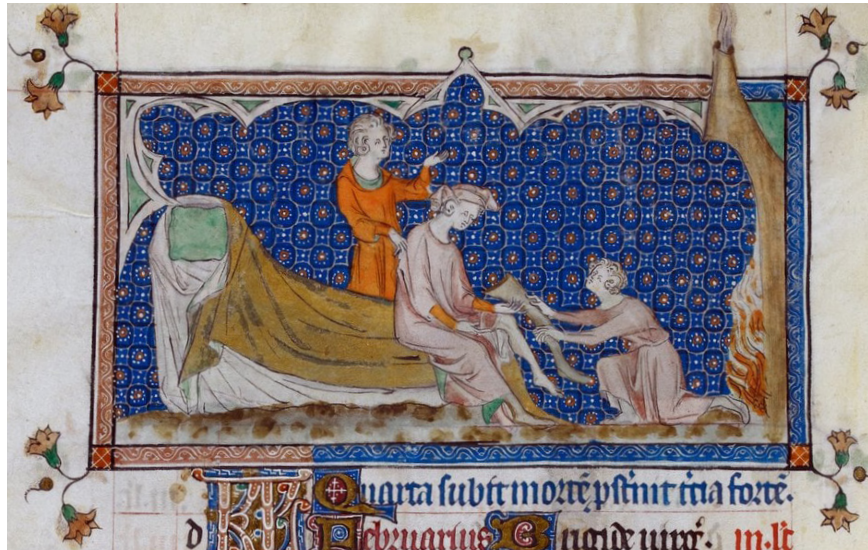 Quarta subit mortē p̄st̄nit t̄cia fortē.
d KL Februarius Brigide uirḡ. iii. lc̄